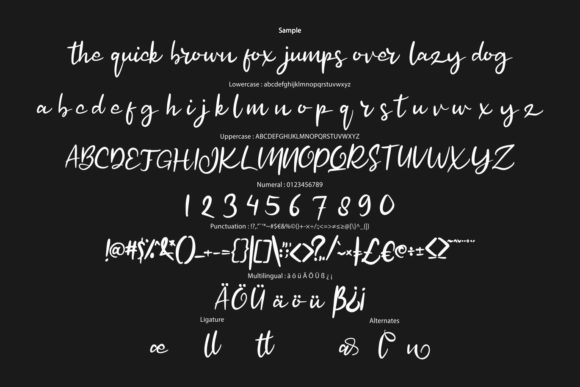 Sample
the quick brown fox jumps over lazy dog
Lowercase : abcdefghijklmnopqrstuvwxyz
a b c d e f g h i j k l m n o p q r s t u v w x y z
Uppercase : ABCDEFGHIJKLMNOPQRSTUVWXYZ
ABCDEFGHIJKLMNOPQRSTUVWXYZ
Numeral : 0123456789
1 2 3 4 5 6 7 8 9 0
Multilingual : ä ö ü Ä Ö Ü ß ¿ ¡
ÄÖÜ ä ö ü ß¿¡
Ligature Alternates
æ ll tt